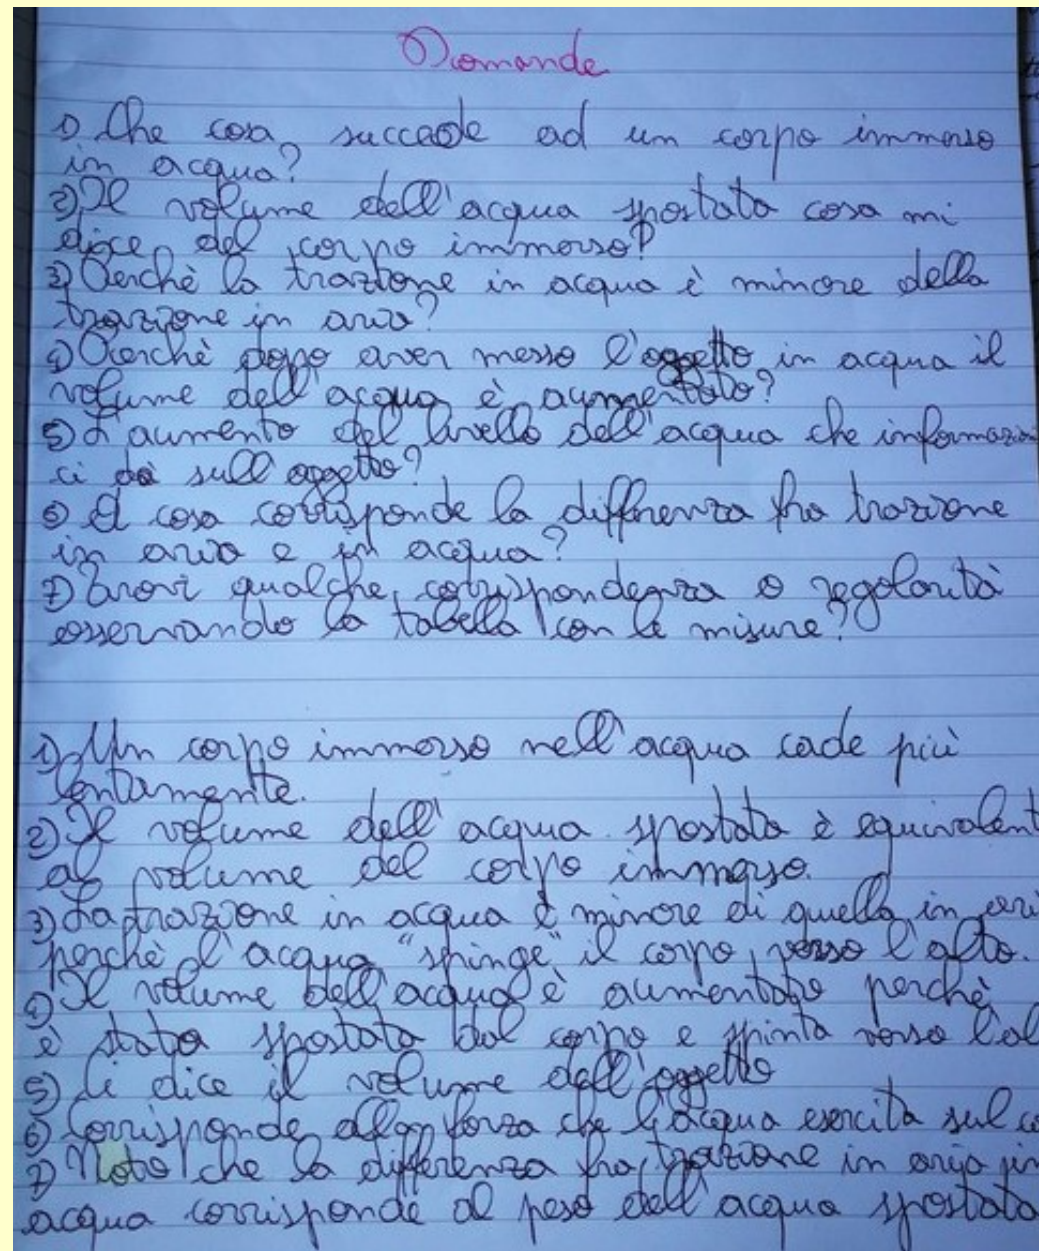 Domande
1) Che cosa succede ad un corpo immerso
in acqua?
2) Il volume dell'acqua spostata cosa mi
dice del corpo immerso?
3) Perchè la trazione in acqua è minore della
trazione in aria?
4) Perchè dopo aver messo l'oggetto in acqua il
volume dell'acqua è aumentato?
5) L'aumento del livello dell'acqua che informazioni
ci dà sull'oggetto?
6) A cosa corrisponde la differenza fra trazione
in aria e in acqua?
7) Trovi qualche corrispondenza o regolarità
osservando la tabella con le misure?
1) Un corpo immerso nell'acqua cade più
lentamente.
2) Il volume dell'acqua spostata è equivalent
al volume del corpo immerso.
3) La trazione in acqua è minore di quella in ari
perchè l'acqua "spinge" il corpo verso l'alto.
4) Il volume dell'acqua è aumentato perchè
è stata spostata dal corpo e spinta verso l'al
5) Ci dice il volume dell'oggetto
6) Corrisponde alla forza che l'acqua esercita sul co
7) Noto che la differenza fra trazione in aria in
acqua corrisponde al peso dell'acqua spostata